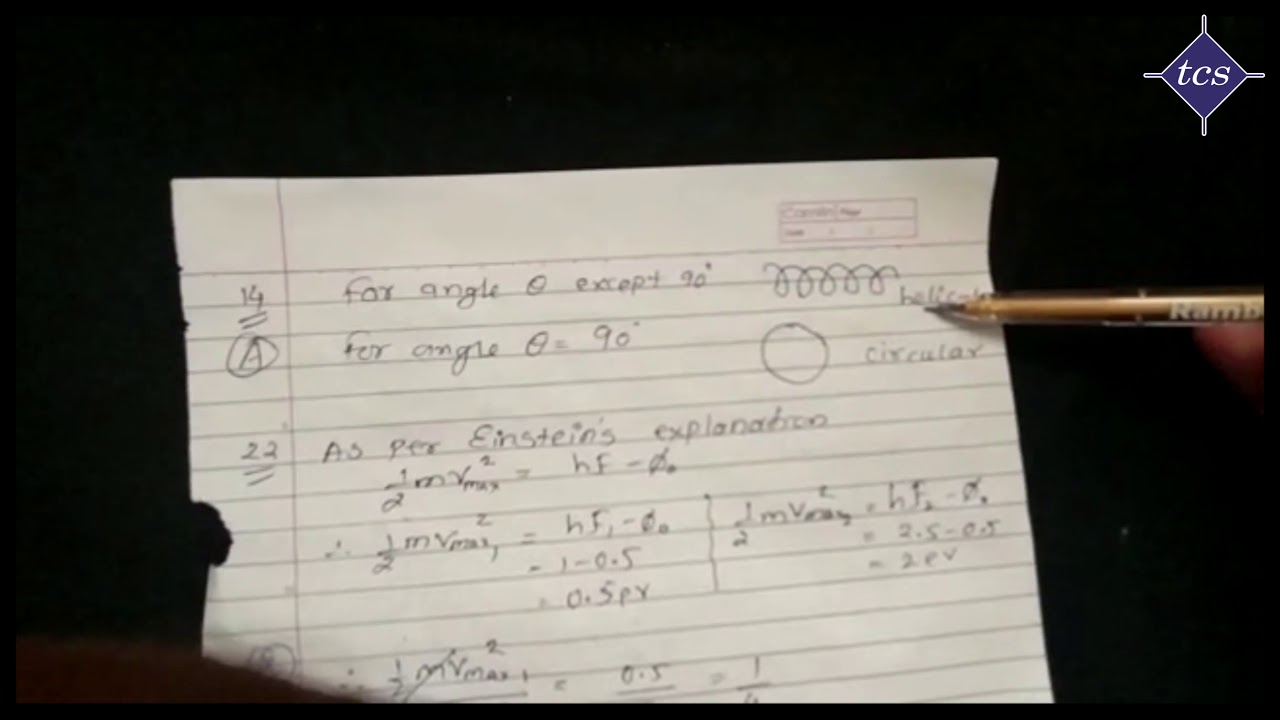 tcs
Date
14 For angle θ except 90°
helical
(A) For angle θ = 90° circular
22 As per Einstein's explanation
1/2 mv²max = hf - ϕ₀
∴ 1/2 mv²max₁ = hf₁ - ϕ₀
= 1 - 0.5
= 0.5 eV
1/2 mv²max₂ = hf₂ - ϕ₀
= 2.5 - 0.5
= 2 eV
∴ 1/2 mv²max₁ = 0.5 = 1